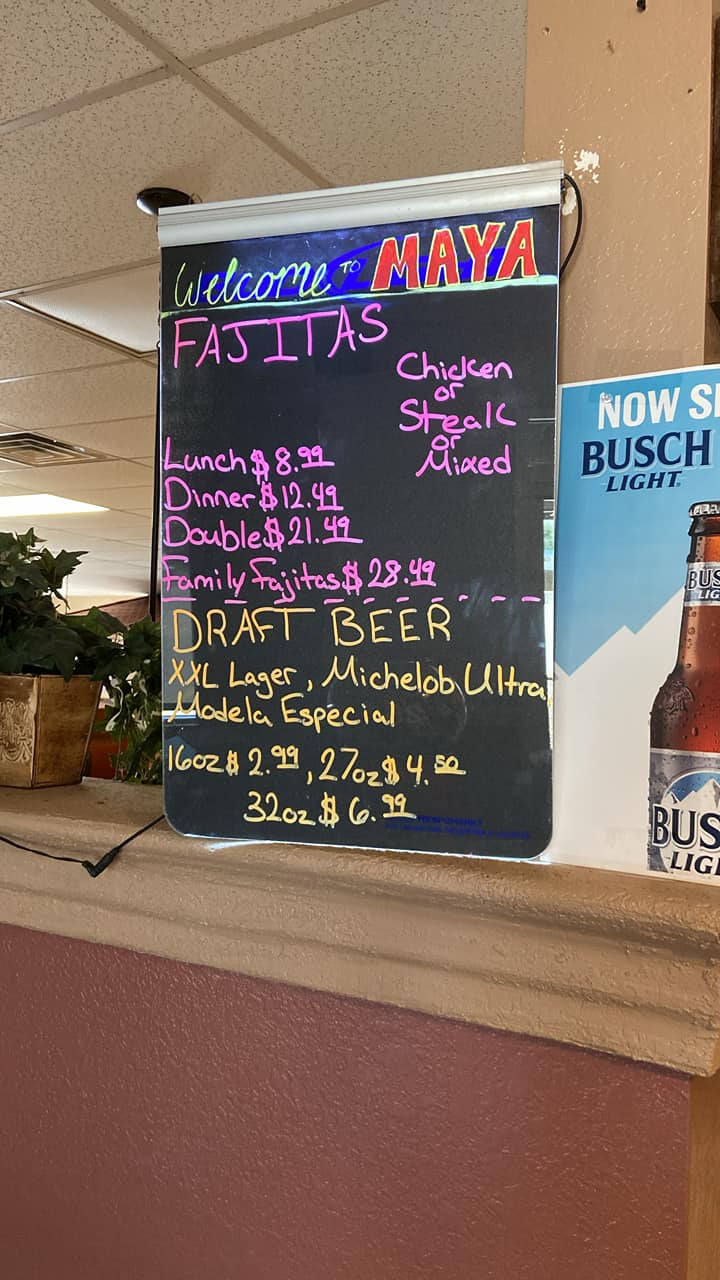 Welcome TO MAYA
FAJITAS
Chicken
or
Steak
or
Mixed
Lunch $8.99
Dinner $12.49
Double $21.49
Family Fajitas $28.49
DRAFT BEER
XXL Lager, Michelob Ultra
Modela Especial
16oz $2.99, 27oz $4.50
32oz $6.99
NOW S
BUSCH
LIGHT
BUS
LIG
BUS
LIG